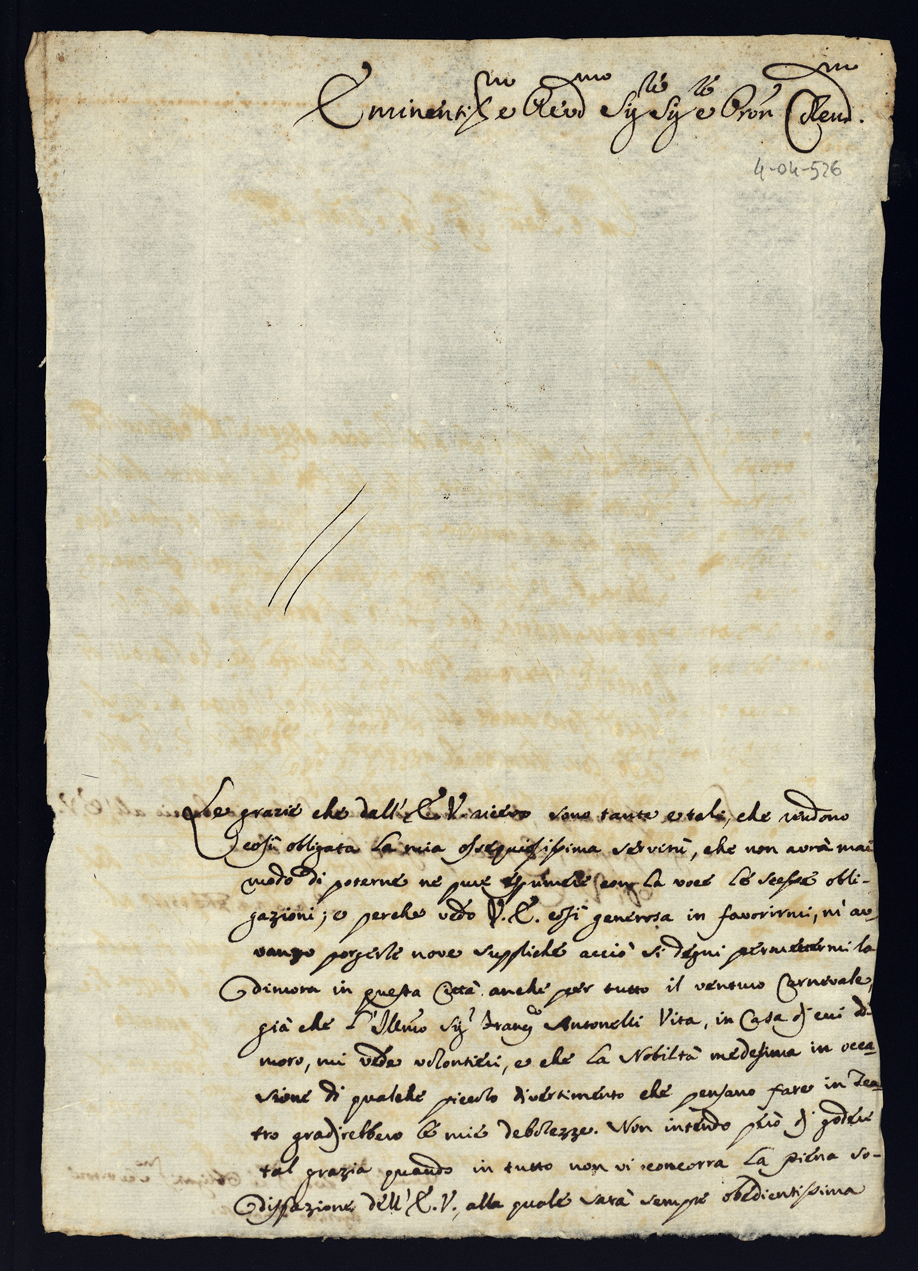 Eminentiss.mo e Rev.mo Sig.re Sig.re e Pron Rev.mo
4-04-526
Le grazie che dall'E.V. ricevo sono tante e tali, che rendono
cosi obligata la mia ossequiosissima servitù, che non avrà mai
modo di poterne ne pure esprimere con la voce le stesse obli-
gazioni; e perche vedo V.E. cosi generosa in favorirmi, mi av-
vanzo porgerle nove suppliche acciò si degni permettermi la
dimora in questa Città anche per tutto il venturo Carnevale,
già che l'Illmo Sig.r Franc.o Antonelli Vita, in Casa di cui di-
moro, mi vede volontieri, e che la Nobiltà medesima in occa-
sione di qualche piccolo divertimento che pensano fare in Tea-
tro gradirebbero le mie debolezze. Non intendo però di godere
tal grazia quando in tutto non vi concorra la piena so-
disfazione dell'E.V., alla quale sarà sempre obedientissima